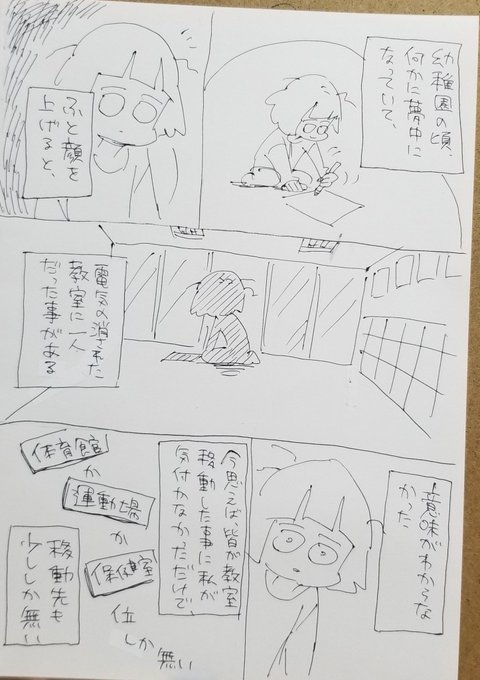 幼稚園の頃、
何かに夢中に
なっていて、
ふと顔を
上げると、
電気の消された
教室に一人
だった事がある
意味がわからな
かった
今思えば、皆が教室
移動した事に私が
気付かなかっただけで、
体育館
か
運動場
か
保健室
位
しか
無い
移動先も
少ししか無い